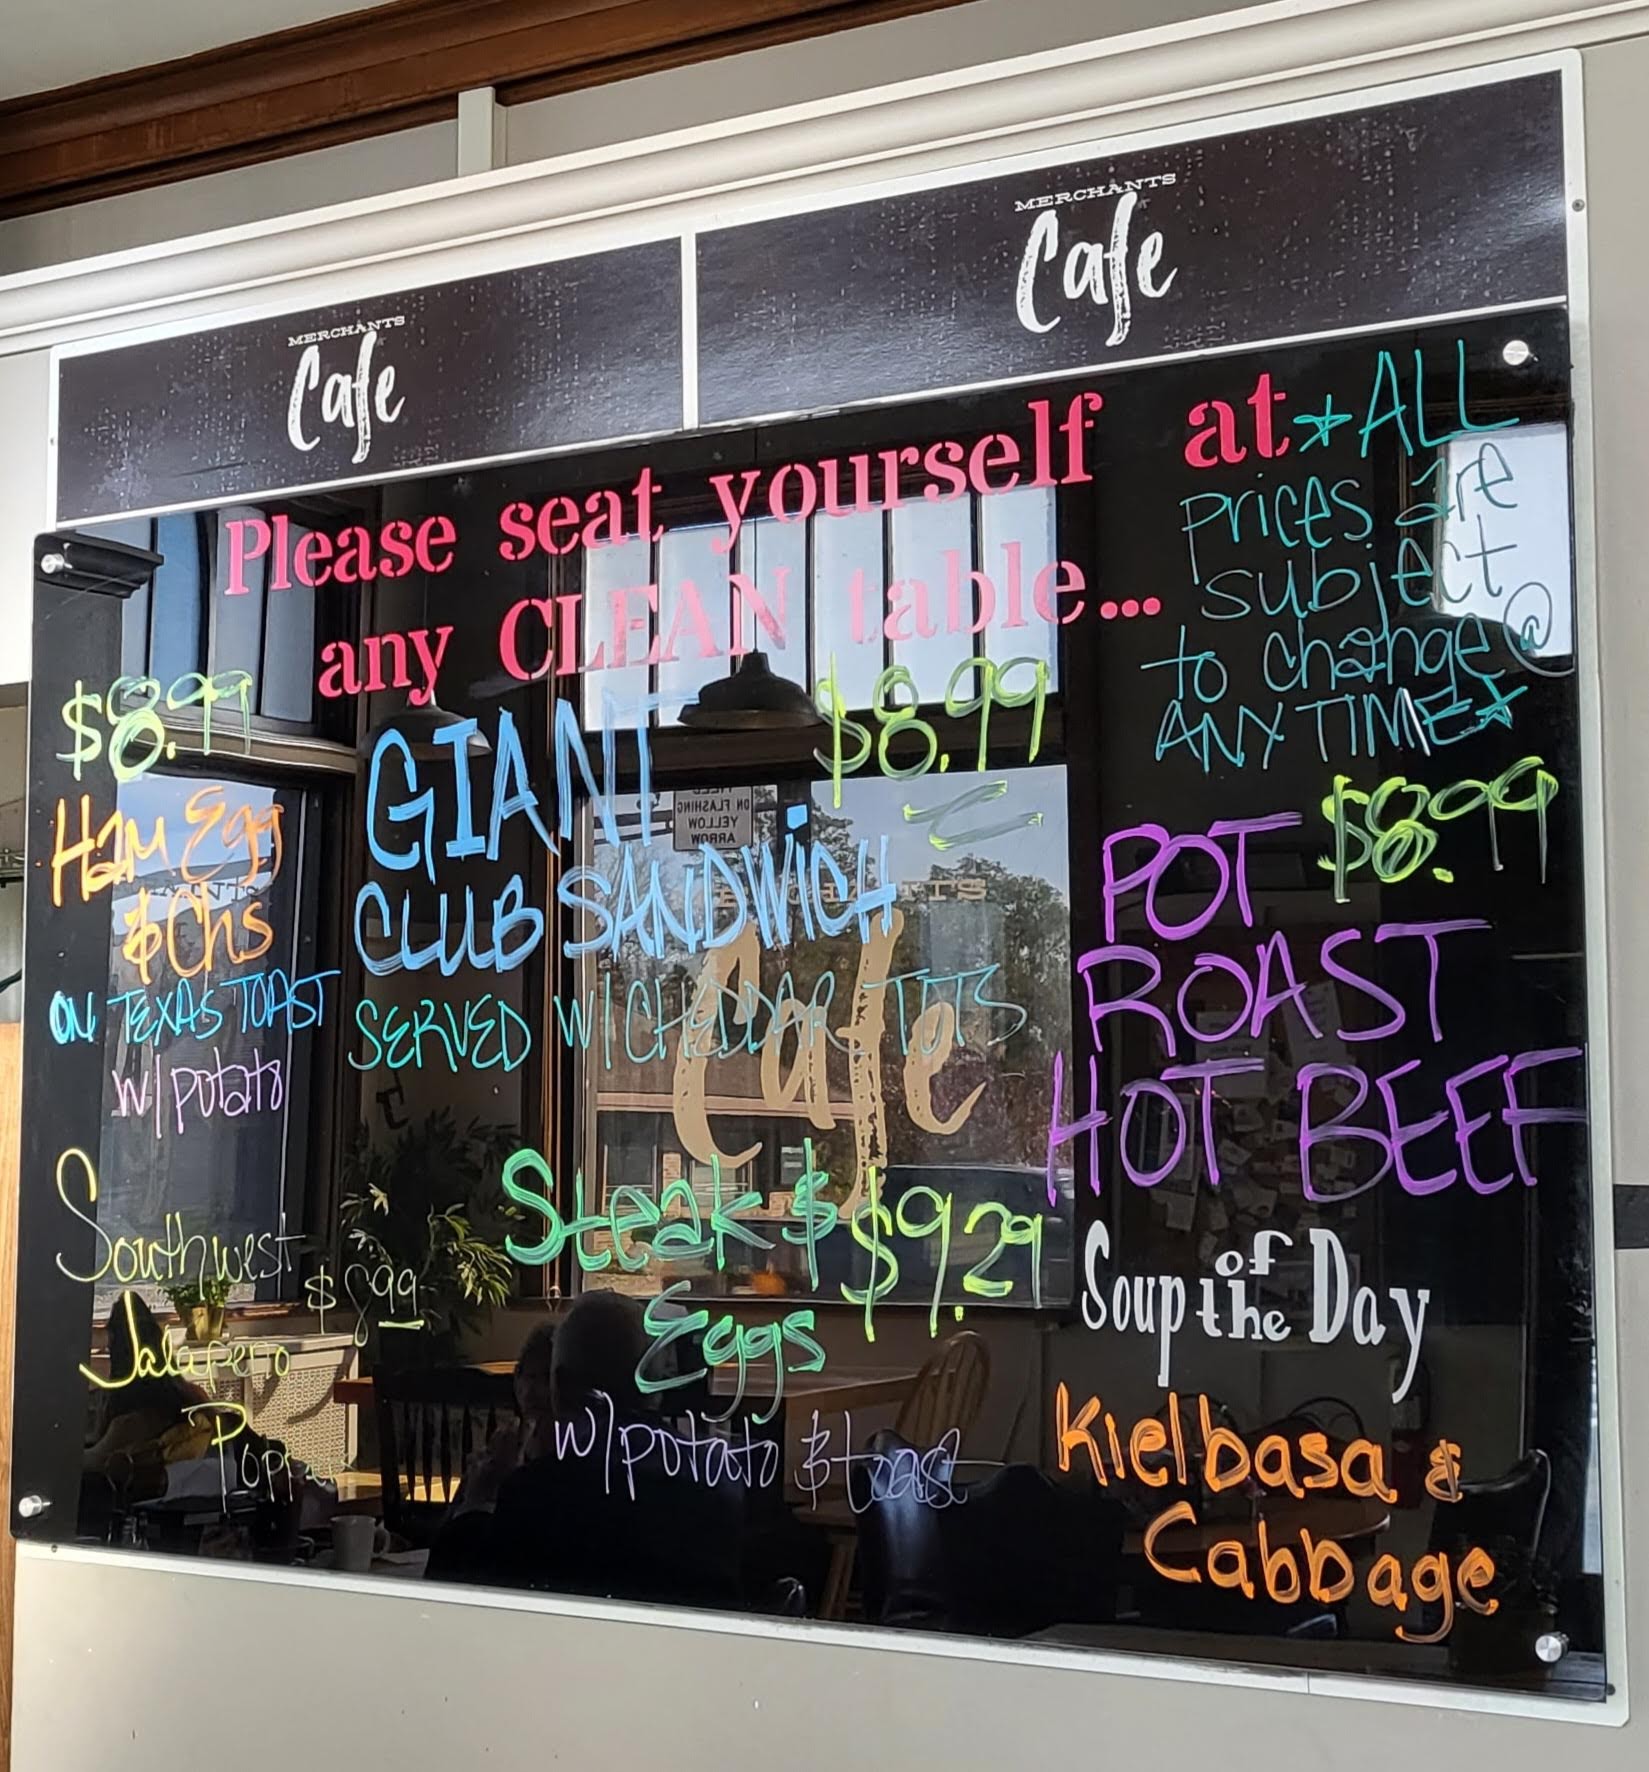 MERCHANTS
Cafe
MERCHANTS
Cafe
Please seat yourself at
any CLEAN table...
*ALL
prices are
subject
to change @
ANY TIME*
$8.99
Ham Egg
& Chs
ON TEXAS TOAST
w/potato
$8.99
GIANT
CLUB SANDWICH
SERVED W/CHEDDAR TOTS
$8.99
POT
ROAST
HOT BEEF
Southwest
$8.99
Jalapeno
Poppers
Steak &
$9.29
Eggs
w/potato & toast
Soup of the Day
Kielbasa &
Cabbage
ON FLASHING
YELLOW
ARROW
Cafe